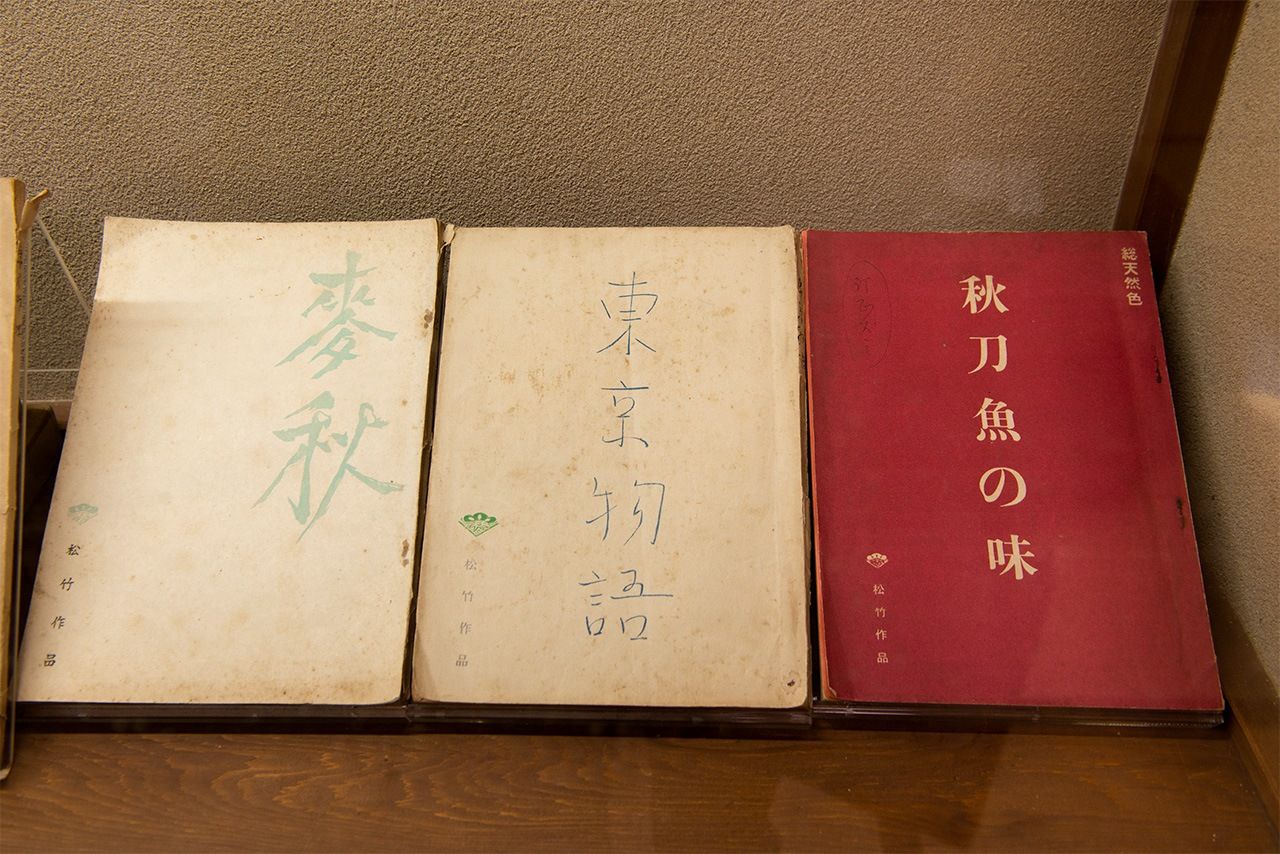 麥秋
松竹作品
東京物語
松竹作品
総天然色
秋刀魚の味
松竹作品